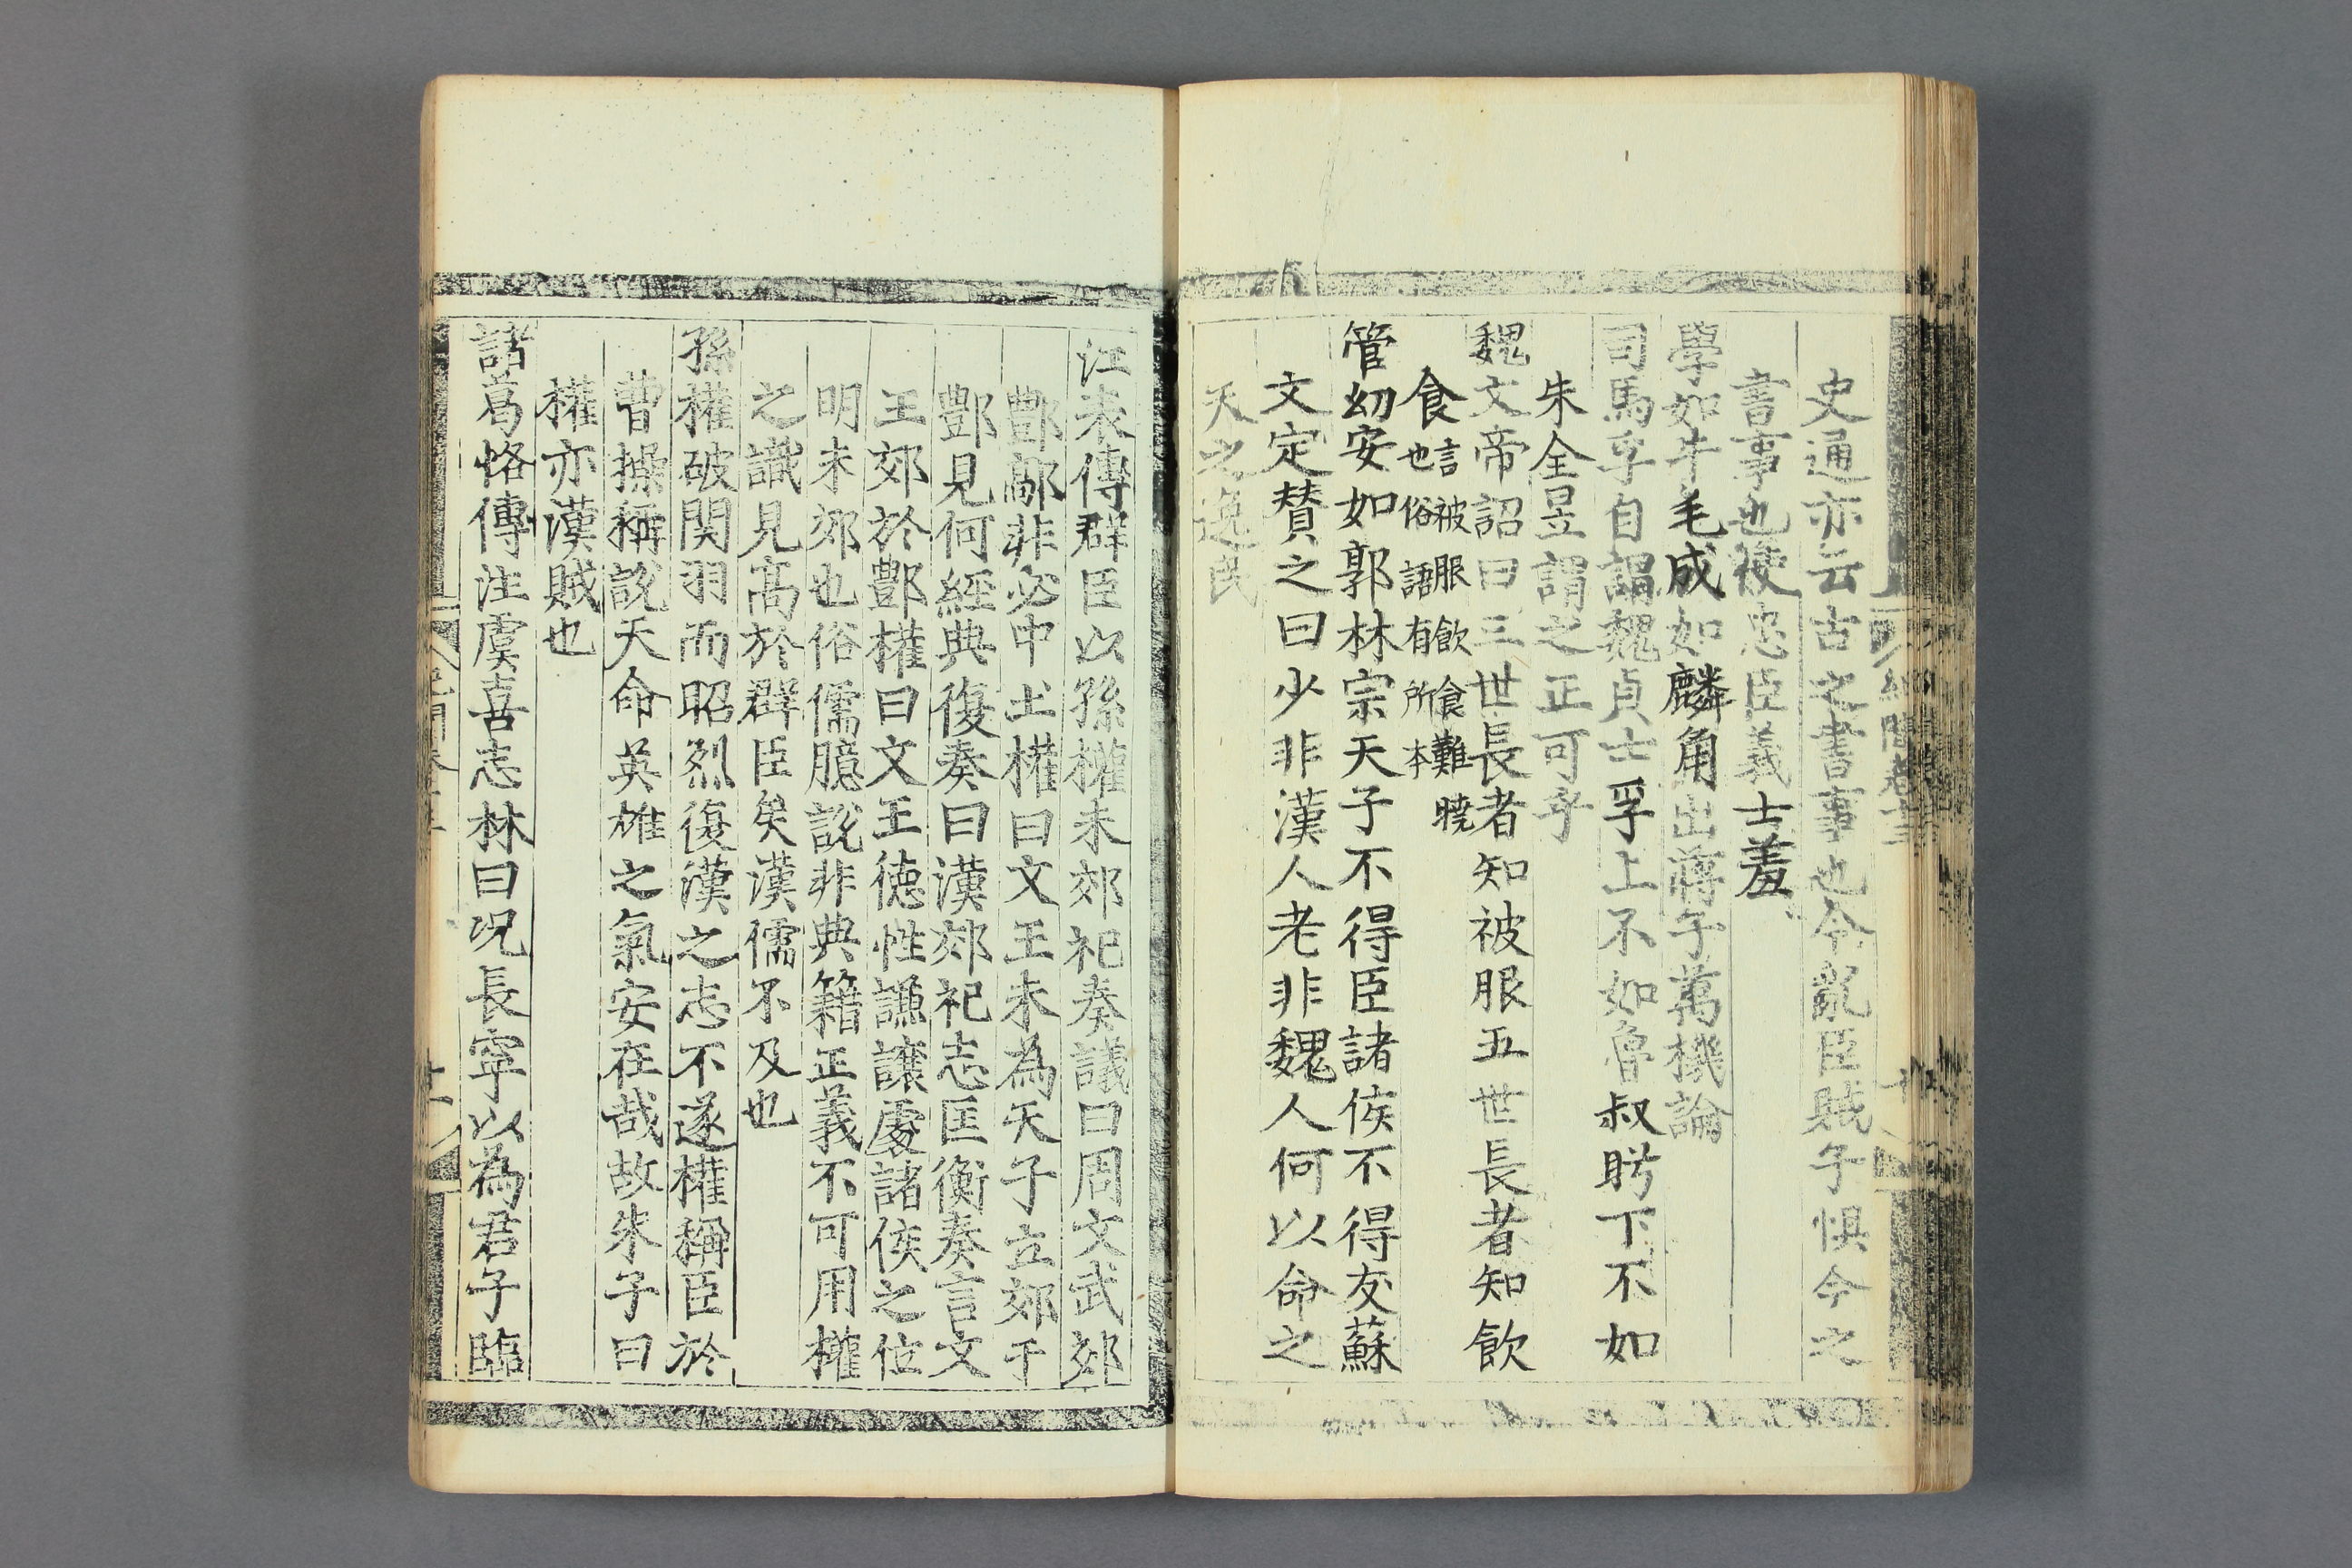 史通亦云古之書事也令亂臣賊子懼今之
書事也使忠臣義士羞
學如牛毛成如麟角出蔣子萬機論
司馬孚自謂魏貞士孚上不如魯叔肹下不如
朱全昱謂之正可乎
魏文帝詔曰三世長者知被服五世長者知飲
食言被服飲食難曉
也俗語有所本
管幼安如郭林宗天子不得臣諸侯不得友蘇
文定賛之曰少非漢人老非魏人何以命之
天之逸民
江表傳群臣以孫權未郊祀奏議曰周文武郊
酆鄗非必中土權曰文王未為天子立郊于
酆見何經典復奏曰漢郊祀志匡衡奏言文
王郊於酆權曰文王徳性謙讓處諸侯之位
明未郊也俗儒臆說非典籍正義不可用權
之識見高於群臣矣漢儒不及也
孫權破関羽而昭烈復漢之志不遂權稱臣於
曹操稱說天命英雄之氣安在哉故朱子曰
權亦漢賊也
諸葛恪傳注虞喜志林曰况長寧以為君子臨